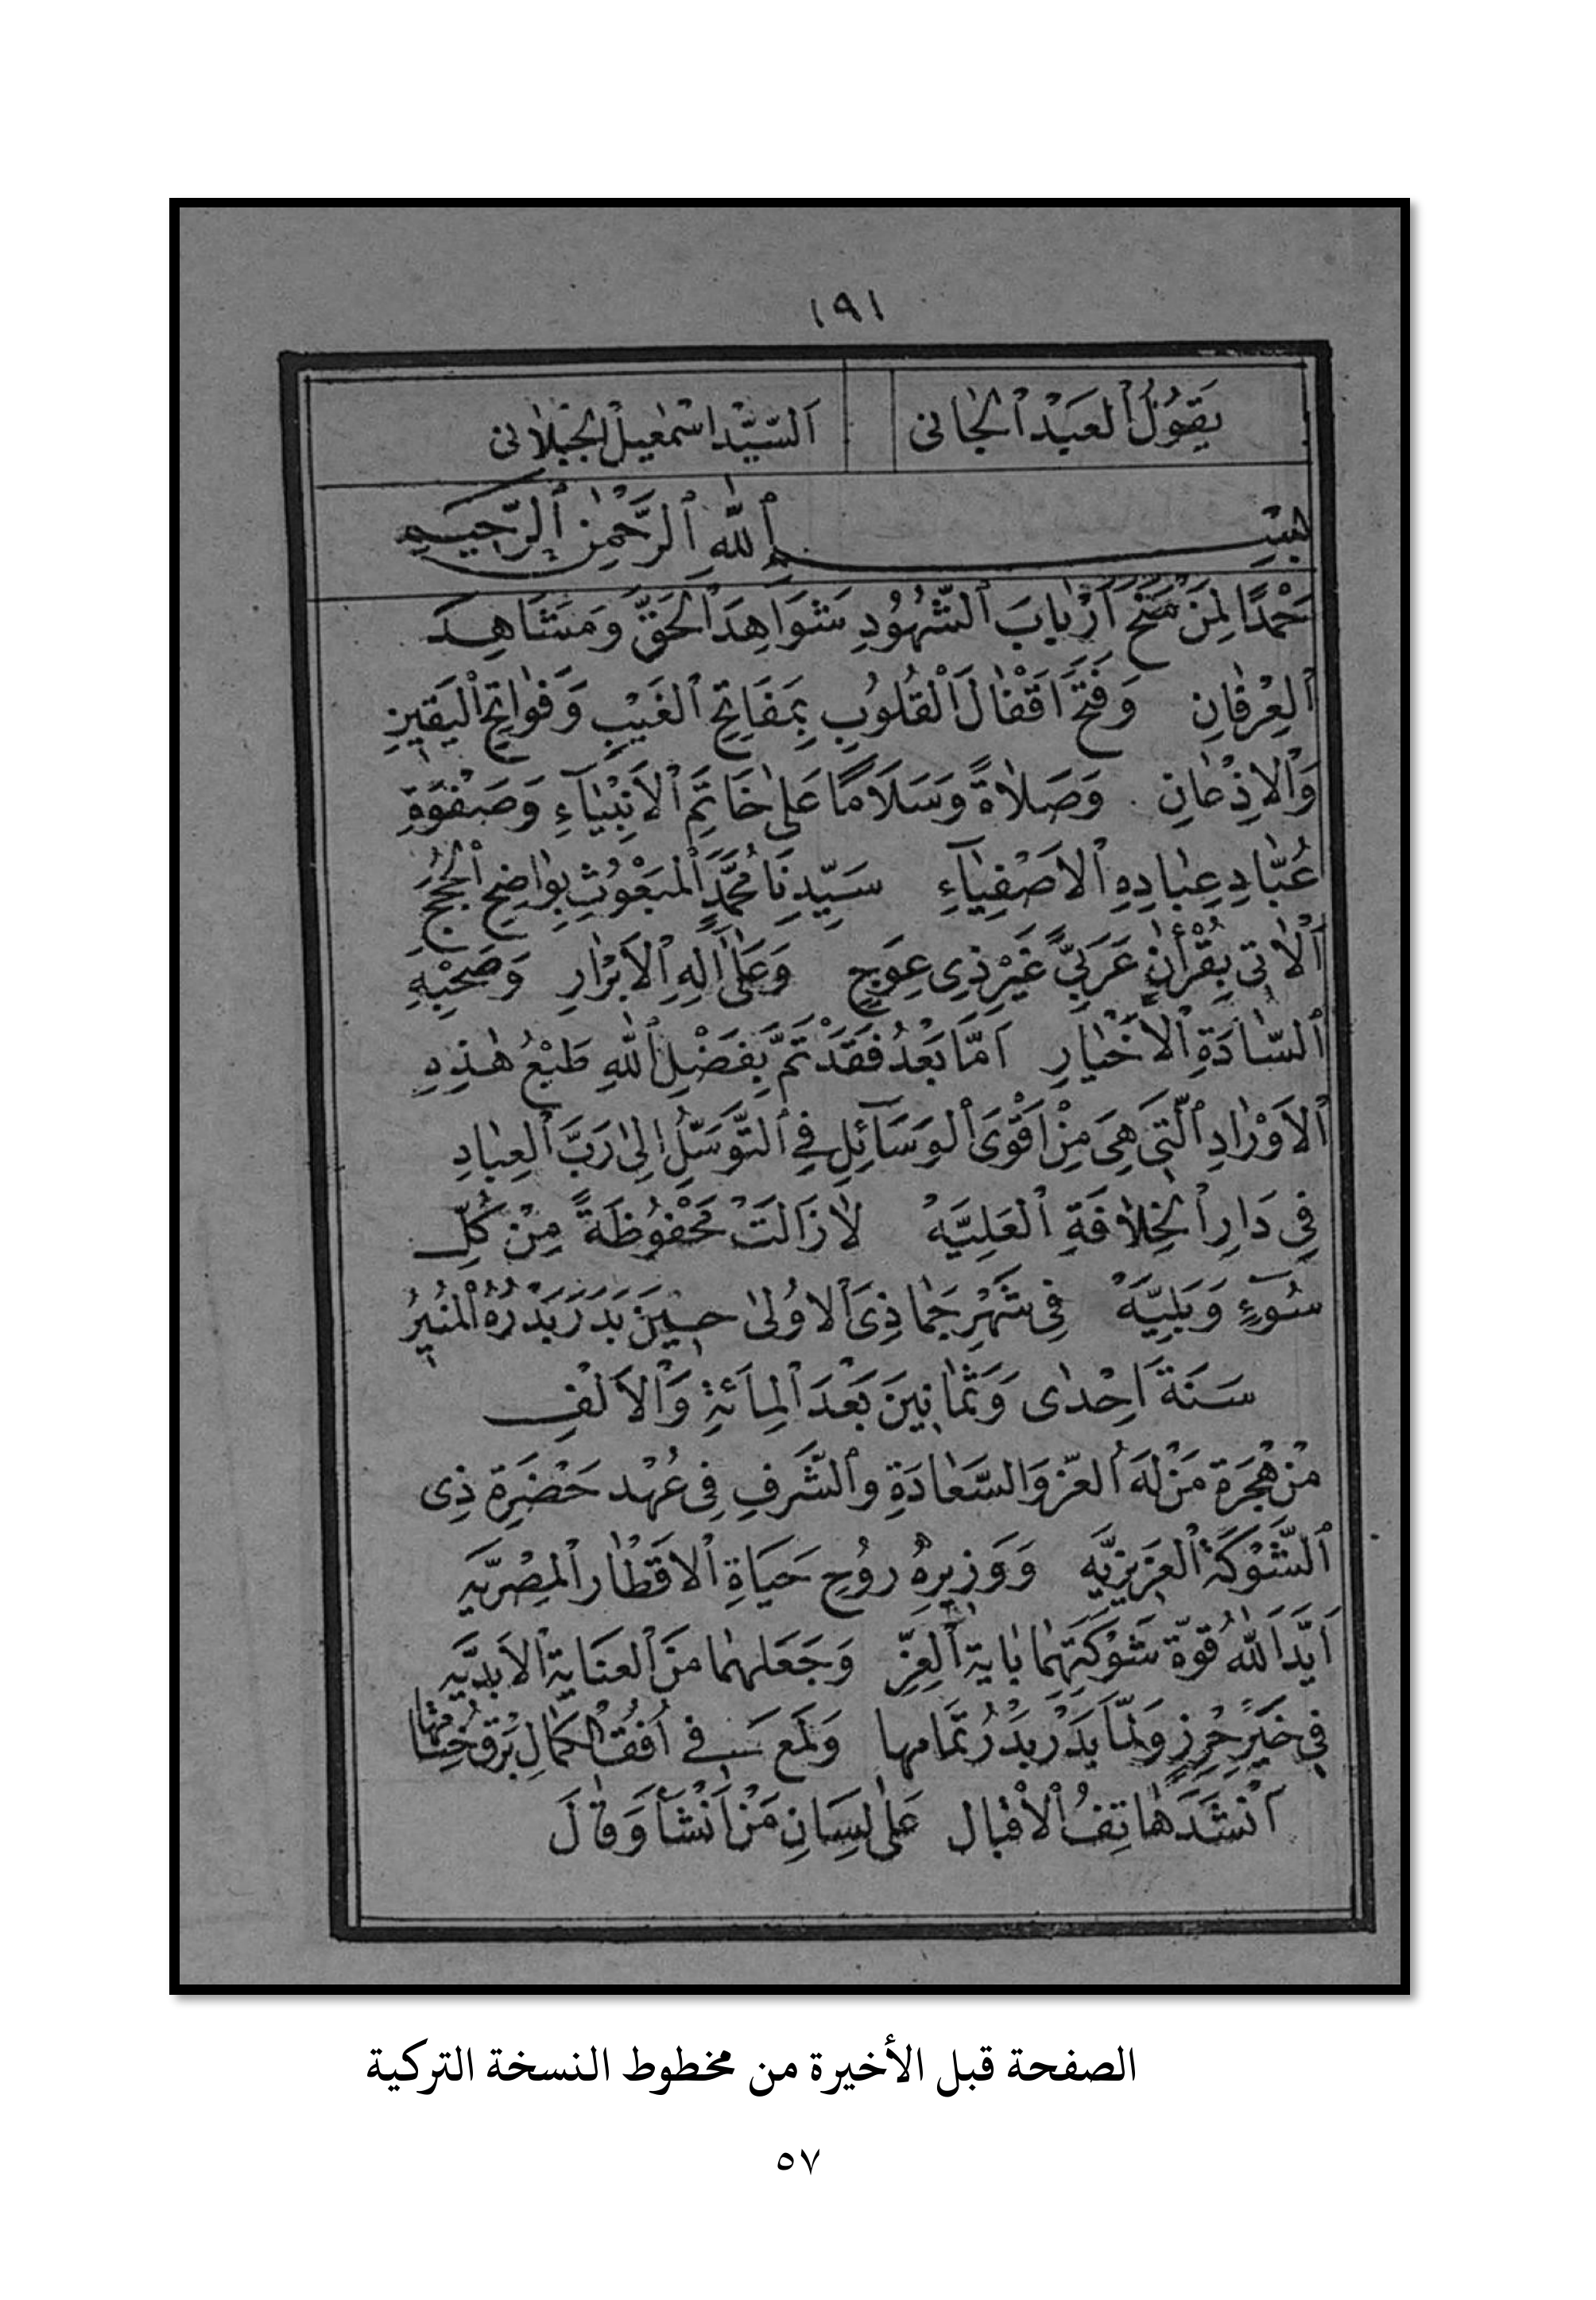 ١٩١
يَقُولُ ٱلعَبْدُ ٱلجَانى ٱلسَّيِّدْ اسْمٰعِيلْ ٱلجَيْلَانى
بِسْمِ ٱللّٰهِ ٱلرَّحْمٰنِ ٱلرَّحِيمِ
حَمْدًا لِمَنْ مَنَحَ اَرْبابَ ٱلشُّهُودِ شَوَاهِدَ ٱلحَقِّ وَمَشَاهِدَ
ٱلعِرْفانِ وَفَتَحَ اَقْفالَ ٱلْقُلُوبِ بِمَفَاتِحِ ٱلغَيْبِ وَفَواتِحِ ٱليَقِينِ
وَٱلاِذْعانِ وَصَلاةً وَسَلَامًا عَلىٰ خَاتِمِ ٱلاَنْبِيٰآءِ وَصَفْوَةِ
عُبَّادِ عِبادِهِ ٱلاَصْفِيٰآءِ سَيِّدِنَا مُحَمَّدٍ ٱلْمَبْعُوثِ بِوَاضِحِ ٱلحُجَجِ
ٱلاٰتى بِقُرْأٰنٍ عَرَبِيٍّ غَيْرَ ذِى عِوَجٍ وَعَلىٰ اٰلِهِ ٱلاَبْرٰارِ وَصَحْبِهِ
ٱلسَّادَةِ ٱلاَخْيٰارِ اَمَّا بَعْدُ فَقَدْ تَمَّ بِفَضْلِ ٱللّٰهِ طَبْعُ هٰذِهِ
ٱلاَوْرٰادِ ٱلَّتِى هِىَ مِنْ اَقْوَى ٱلوَسَآئِلِ فِى ٱلتَّوَسُّلِ اِلىٰ رَبِّ ٱلعِبادِ
فِى دَارِ ٱلخِلافَةِ ٱلعَلِيَّهْ لازَالَتْ مَحْفُوظَةً مِنْ كُلِّ
سُوءٍ وَبَلِيَّهْ فِى شَهْرِ جَمَاذِى ٱلاُولىٰ حِينَ بَدَرَ بَدْرُهُ ٱلْمُنِيرُ
سَنَةَ اَحِدٰى وَثَمٰانِينَ بَعْدَ ٱلمِأَئَةِ وَٱلاَلْفِ
مِنْ هِجْرَةِ مَنْ لَهُ ٱلعِزُّ وَالسَّعٰادَةِ وٱلشَّرَفِ فِى عُهْدِ حَضْرَةِ ذِى
ٱلشَّوْكَةِ ٱلعَزِيزِيَّهِ وَوَزِيرِهُ رُوحِ حَيَاةِ ٱلاَقْطَارِ ٱلمِصْرِيَّهِ
اَيَّدَ ٱللّٰهُ قُوَّةَ شَوْكَتِهِمٰا بِاٰيةِ ٱلعِزِّ وَجَعَلَهُمٰا مِنَ ٱلعنَايةِ ٱلاَبَدِيَّهِ
فِى خَيْرِ حِرزٍ وَلَمَّا بَدَرَ بَدْرُ تَمَامِها وَلَمَعَ فى اُفُقِ ٱلكَمَالِ بَرْقُ خِتَامُها
اَنْشَدَ هٰاتِفُ ٱلاَقْبالِ عَلىٰ لِسَانِ مَنْ اَنْشَأَ وَقَالَ
الصفحة قبل الأخيرة من مخطوط النسخة التركية
٥٧